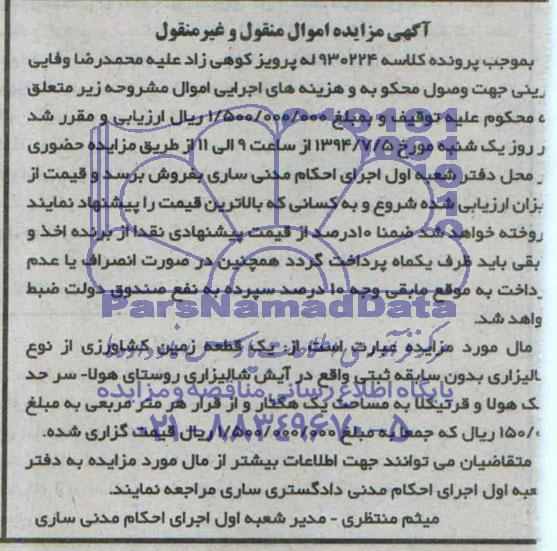 آگهی مزایده اموال منقول و غیرمنقول
بموجب پرونده کلاسه ۹۳۰۲۲۴ له پرویز کوهی زاد علیه محمدرضا وفایی
رینی جهت وصول محکو به و هزینه های اجرایی اموال مشروحه زیر متعلق
ه محکوم علیه توقیف و بمبلغ ۱/۵۰۰/۰۰۰/۰۰۰ ریال ارزیابی و مقرر شد
ر روز یک شنبه مورخ ۱۳۹۴/۷/۵ از ساعت ۹ الی ۱۱ از طریق مزایده حضوری
ر محل دفتر شعبه اول اجرای احکام مدنی ساری بفروش برسد و قیمت از
یزان ارزیابی شده شروع و به کسانی که بالاترین قیمت را پیشنهاد نمایند
روخته خواهد شد ضمنا ۱۰درصد از قیمت پیشنهادی نقدا از برنده اخذ و
بقی باید ظرف یکماه پرداخت گردد همچنین در صورت انصراف یا عدم
رداخت به موقع مابقی وجه ۱۰ درصد سپرده به نفع صندوق دولت ضبط
واهد شد.
مال مورد مزایده عبارت است از: یک قطعه زمین کشاورزی از نوع
الیزاری بدون سابقه ثبتی واقع در آیش شالیزاری روستای هولا- سر حد
ک هولا و قرتیکلا به مساحت یک هکتار و از قرار هر متر مربعی به مبلغ
۱۵۰/۰ ریال که جمعا به مبلغ ۱/۵۰۰/۰۰۰/۰۰۰ ریال قیمت گزاری شده.
متقاضیان می توانند جهت اطلاعات بیشتر از مال مورد مزایده به دفتر
عبه اول اجرای احکام مدنی دادگستری ساری مراجعه نمایند.
میثم منتظری - مدیر شعبه اول اجرای احکام مدنی ساری
ParsNamadData
پایگاه اطلاع رسانی مناقصه و مزایده
۰۲۱-۸۸۳۴۹۶۷۰-۵